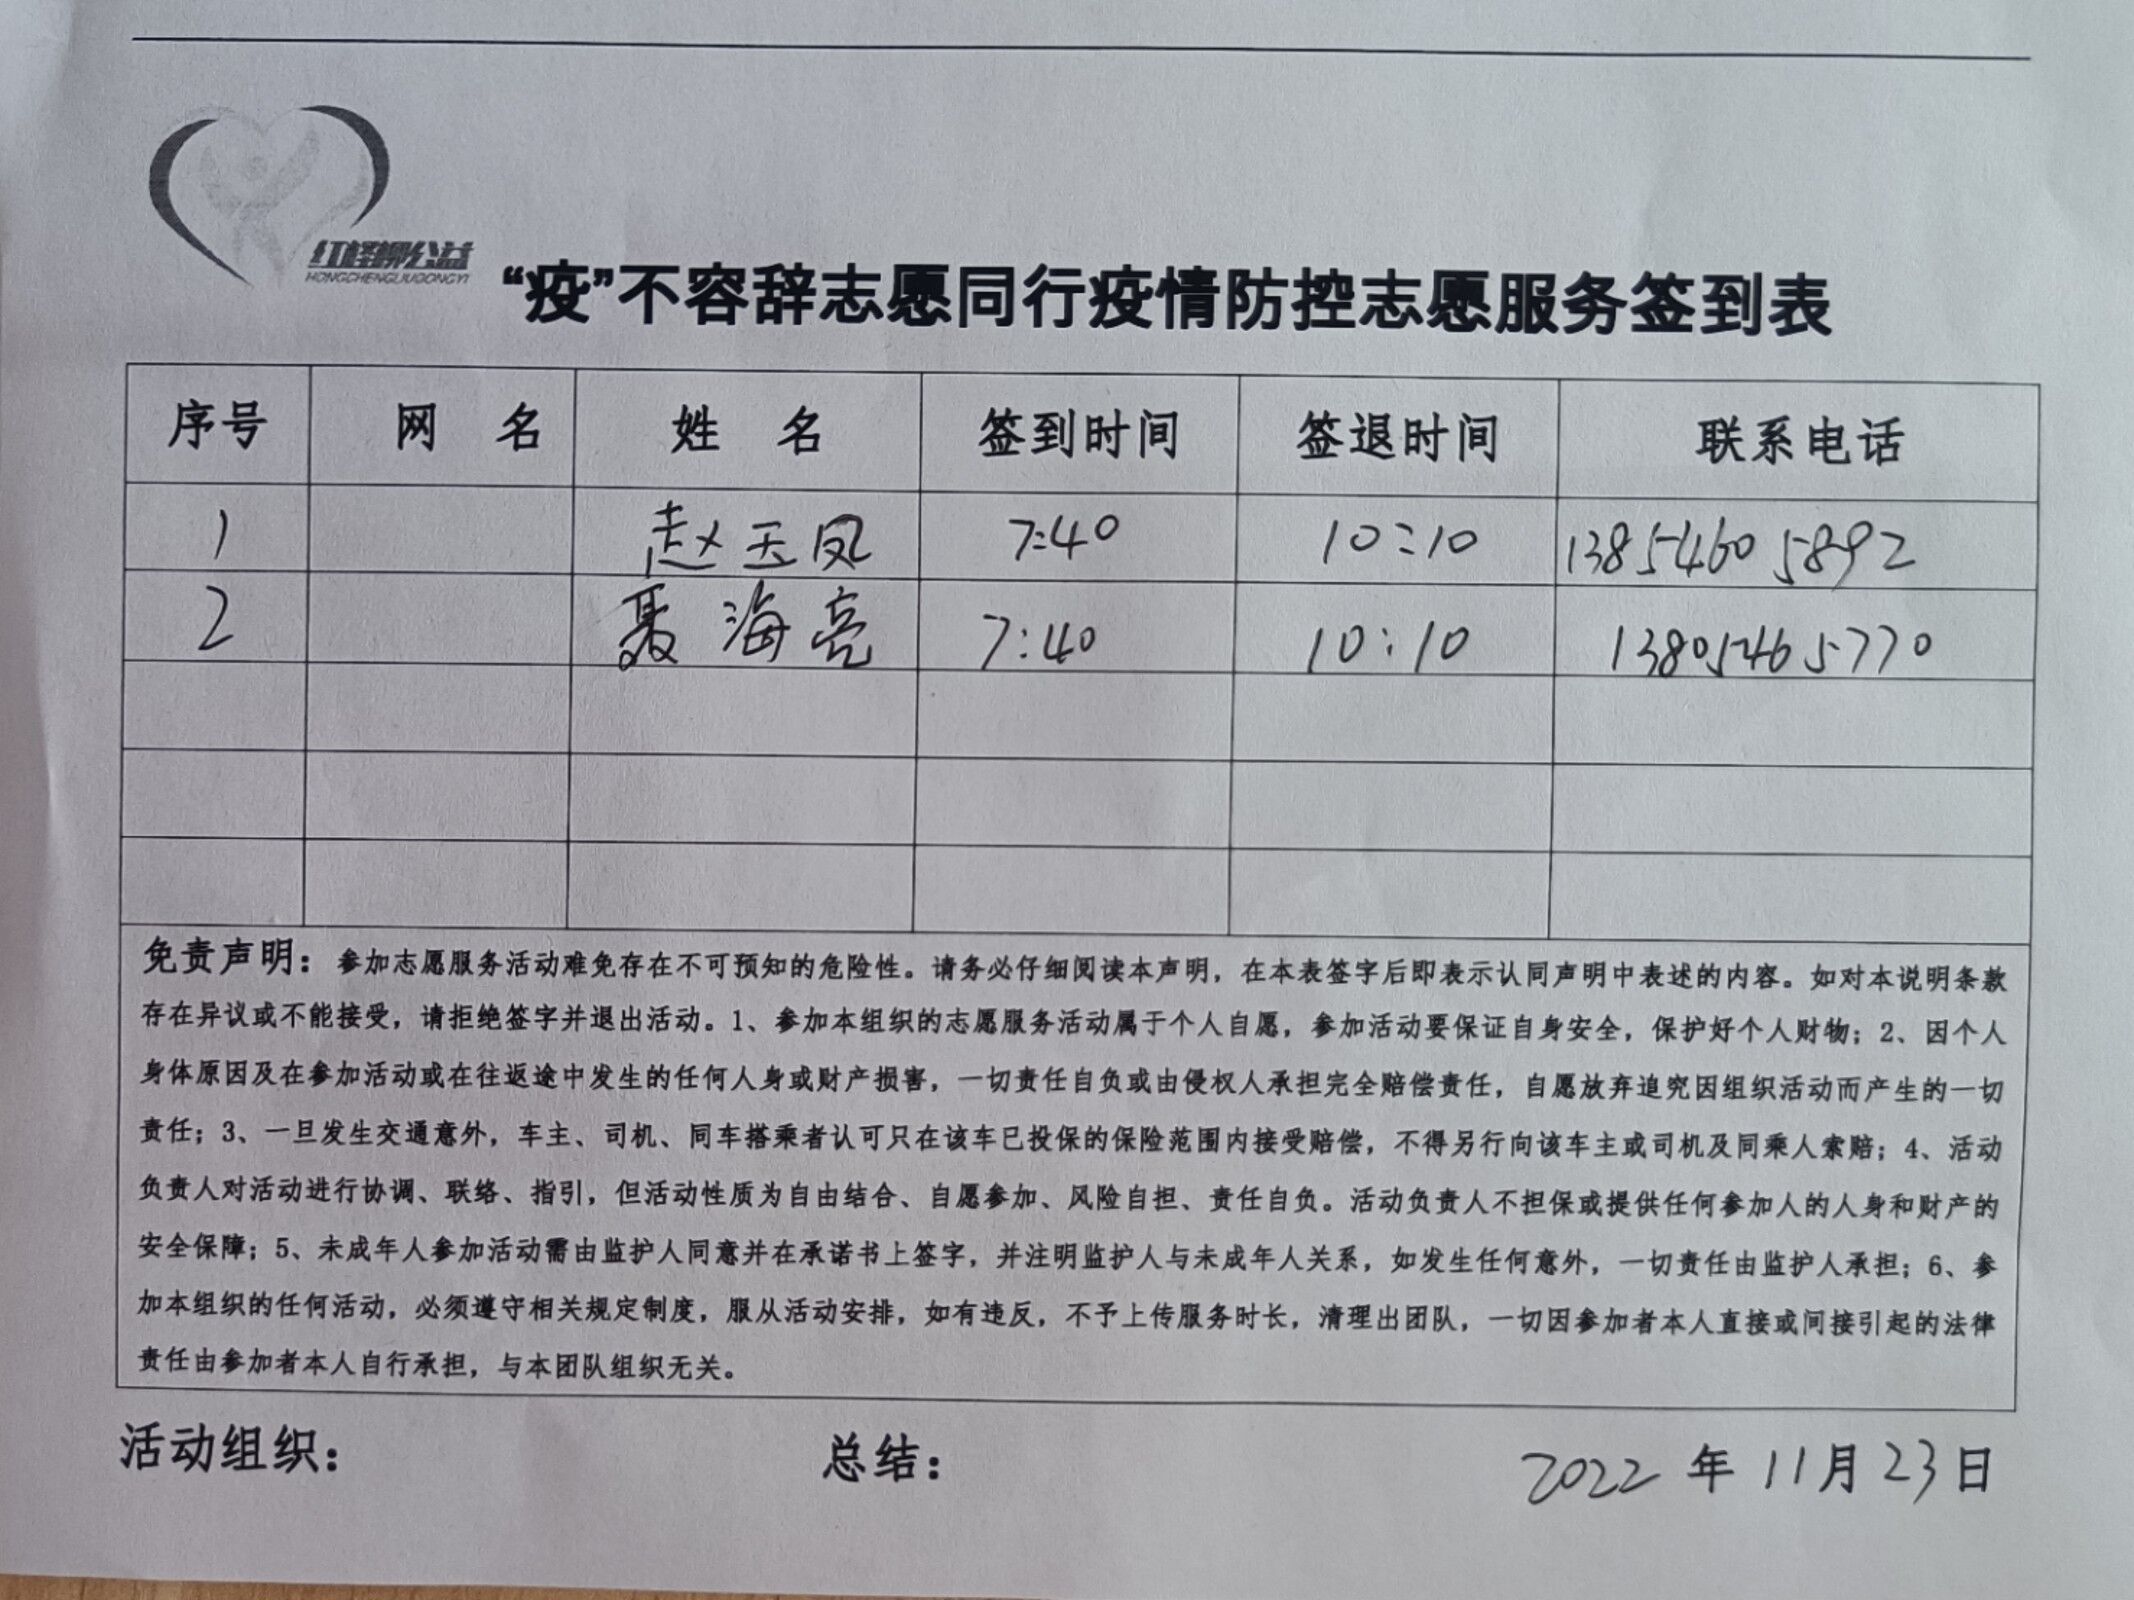 红柽柳公益
HONGCHENGLIUGONGYI
“疫”不容辞志愿同行疫情防控志愿服务签到表
序号 网 名 姓 名 签到时间 签退时间 联系电话
1 赵玉凤 7:40 10:10 13854605892
2 聂海亮 7:40 10:10 13805465770
免责声明：参加志愿服务活动难免存在不可预知的危险性。请务必仔细阅读本声明，在本表签字后即表示认同声明中表述的内容。如对本说明条款
存在异议或不能接受，请拒绝签字并退出活动。1、参加本组织的志愿服务活动属于个人自愿，参加活动要保证自身安全，保护好个人财物；2、因个人
身体原因及在参加活动或在往返途中发生的任何人身或财产损害，一切责任自负或由侵权人承担完全赔偿责任，自愿放弃追究因组织活动而产生的一切
责任；3、一旦发生交通意外，车主、司机、同车搭乘者认可只在该车已投保的保险范围内接受赔偿，不得另行向该车主或司机及同乘人索赔；4、活动
负责人对活动进行协调、联络、指引，但活动性质为自由结合、自愿参加、风险自担、责任自负。活动负责人不担保或提供任何参加人的人身和财产的
安全保障；5、未成年人参加活动需由监护人同意并在承诺书上签字，并注明监护人与未成年人关系，如发生任何意外，一切责任由监护人承担；6、参
加本组织的任何活动，必须遵守相关规定制度，服从活动安排，如有违反，不予上传服务时长，清理出团队，一切因参加者本人直接或间接引起的法律
责任由参加者本人自行承担，与本团队组织无关。
活动组织： 总结： 2022 年 11 月 23 日